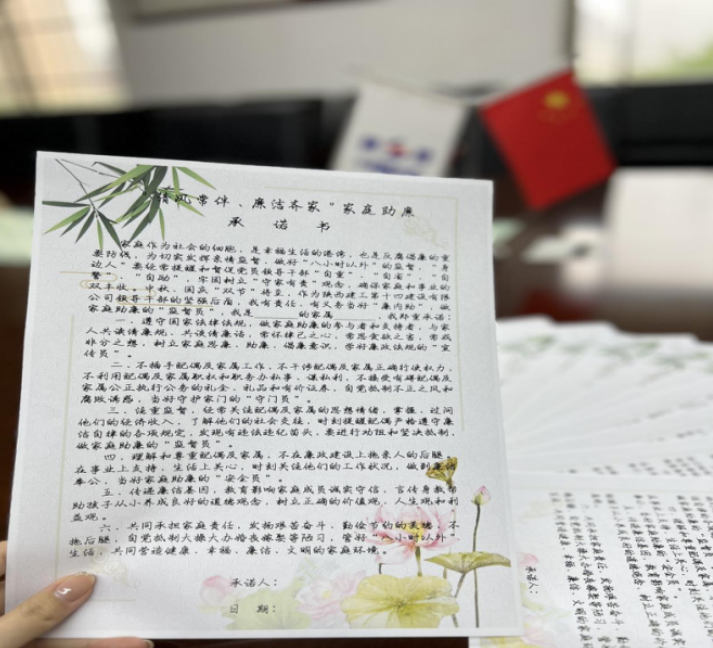 清风常伴、廉洁齐家"家庭助廉
承 诺 书
家庭作为社会的细胞,是幸福生活的港湾,也是反腐倡廉的重
要防线,为切实发挥亲情监督,做好"八小时以外"的监督,"身
边人"要经常提醒和督促党员领导干部"自重"、"自省"、"自
警"、"自励",牢固树立"守家有责"观念,确保家庭和事业的
双丰收。中秋、国庆"双节"将至,作为陕西建工第十四建设有限
公司领导干部的坚强后盾,我有责任,有义务当好"廉内助",做
家庭助廉的"监督员",我是 的家属 ,我郑重承诺:
一、遵守国家法律法规,做家庭助廉的参与者和支持者,与家
人共读清廉规、共谈清廉话,常怀律己之心,常思贪欲之害,常戒
非分之想,树立家庭思廉、助廉、倡廉意识,学好廉政法规的"宣
传员"。
二、不插手配偶及家属工作,不干涉配偶及家属正确行使权力,
不利用配偶及家属职权和职务办私事、谋私利,不接受有碍配偶及
家属公正执行公务的礼金、礼品和有价证券,自觉抵制不正之风和
腐败诱惑,当好守护家门的"守门员"。
三、注重监督,经常关注配偶及家属的思想情绪,掌握、过问
他们的经济收入,了解他们的社会交往,时刻提醒配偶严格遵守廉
洁自律的各项规定,发现有违法违纪苗头,要进行劝阻和坚决抵制,
做家庭助廉的"监督员"。
四、理解和尊重配偶及家属,不在廉政建设上拖亲人的后腿,
在事业上支持、生活上关心,时刻关注他们的工作状况,做到廉洁
奉公,当好家庭助廉的"安全员"。
五、传递廉洁基因,教育影响家庭成员诚实守信,言传身教帮
助孩子从小养成良好的道德观念,树立正确的价值观、人生观和利
益观。
六、共同承担家庭责任,发扬艰苦奋斗、勤俭节约的美德,不
拖后腿,自觉抵制大操大办婚丧嫁娶等陋习,管好"八小时以外"
生活,共同营造健康、幸福、廉洁、文明的家庭环境。
承诺人:
日 期:
承诺人: